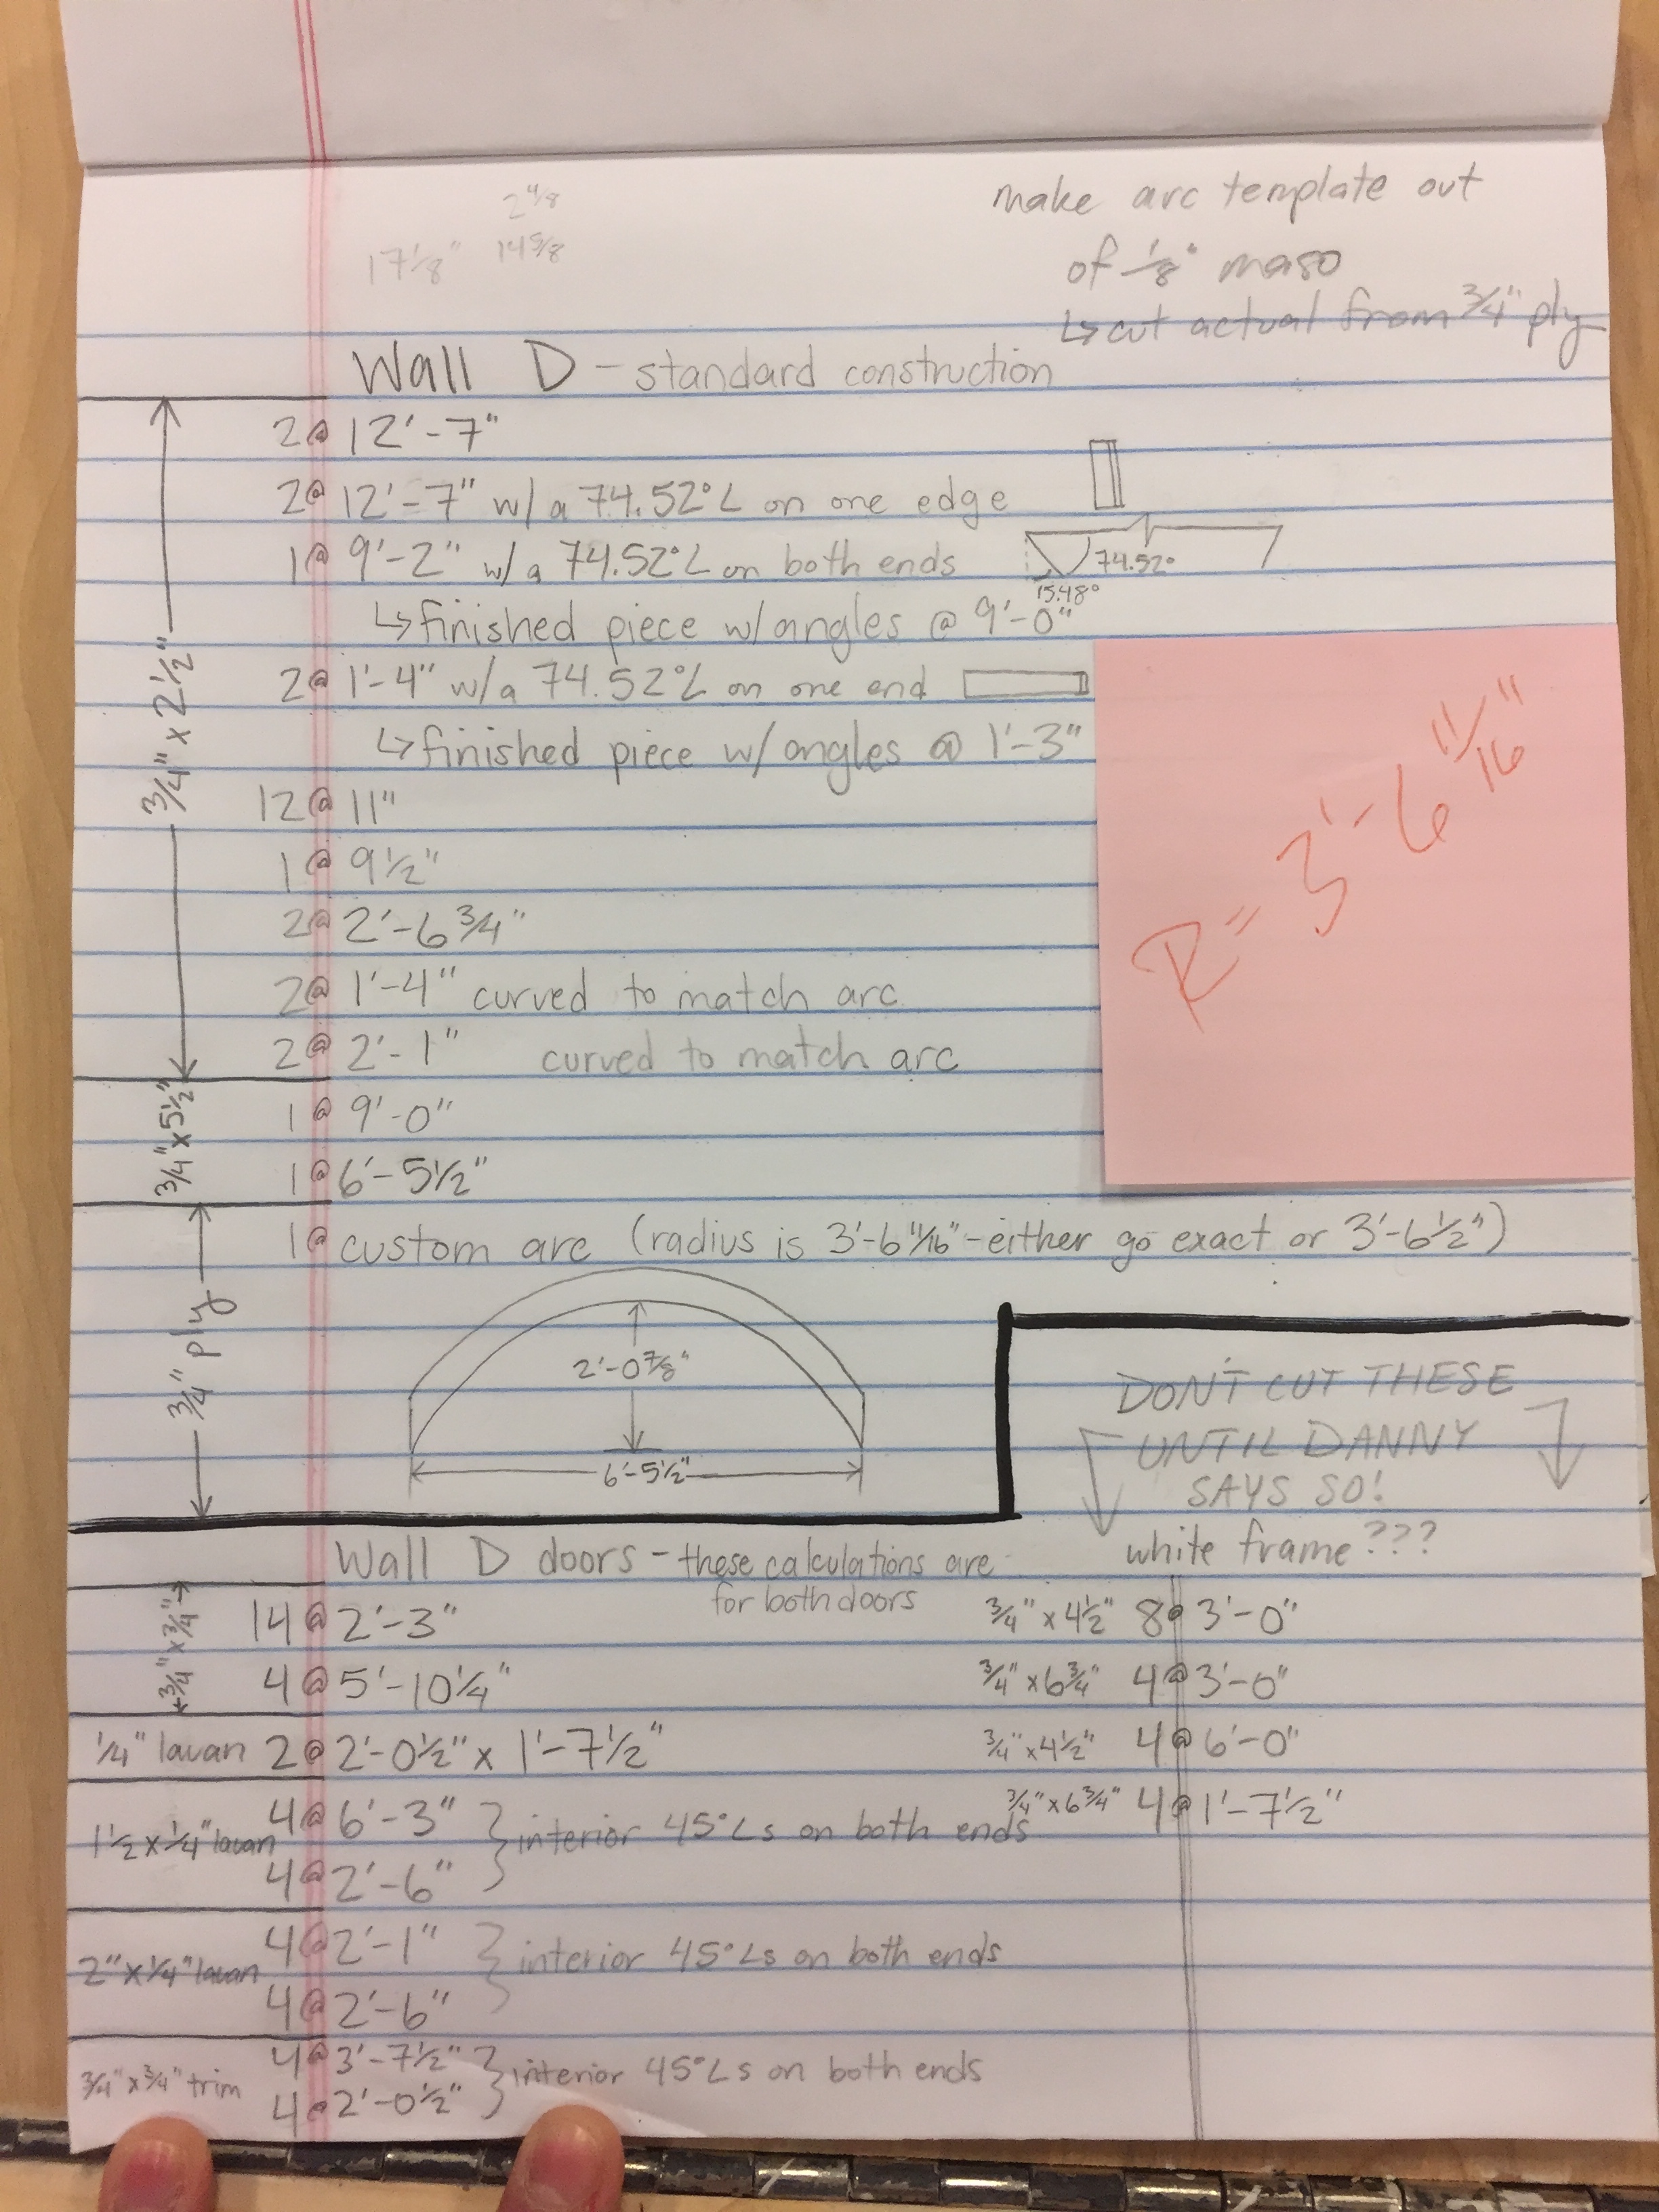 2 4/8
17 1/8" 14 5/8
make arc template out
of 1/8" maso
↳ cut actual from 3/4" ply
Wall D - standard construction
3/4" x 2 1/2"
2@ 12'-7"
2@ 12'-7" w/a 74.52°∠ on one edge
1@ 9'-2" w/a 74.52°∠ on both ends
74.52°
15.48°
↳ finished piece w/angles @ 9'-0"
2@ 1'-4" w/a 74.52°∠ on one end
↳ finished piece w/ angles @ 1'-3"
12@ 11"
1@ 9 1/2"
2@ 2'-6 3/4"
2@ 1'-4" curved to match arc
2@ 2'-1" curved to match arc
R= 3'-6 11/16"
3/4" x 5 1/2"
1@ 9'-0"
1@ 6'-5 1/2"
3/4" ply
1@ custom arc (radius is 3'-6 11/16" - either go exact or 3'-6 1/2")
2'-0 7/8"
6'-5 1/2"
DON'T CUT THESE
UNTIL DANNY
SAYS SO!
white frame???
Wall D doors - these calculations are
for both doors
3/4" x 3/4"
14@ 2'-3"
4@ 5'-10 1/4"
1/4" lauan 2@ 2'-0 1/2" x 1'-7 1/2"
1 1/2 x 1/4" lauan
4@ 6'-3"
4@ 2'-6"
interior 45°∠s on both ends
2" x 1/4" lauan
4@ 2'-1"
4@ 2'-6"
interior 45°∠s on both ends
3/4" x 3/4" trim
4@ 3'-7 1/2"
4@ 2'-0 1/2"
interior 45°∠s on both ends
3/4" x 4 1/2" 8@ 3'-0"
3/4" x 6 3/4" 4@ 3'-0"
3/4" x 4 1/2" 4@ 6'-0"
3/4" x 6 3/4" 4@ 1'-7 1/2"